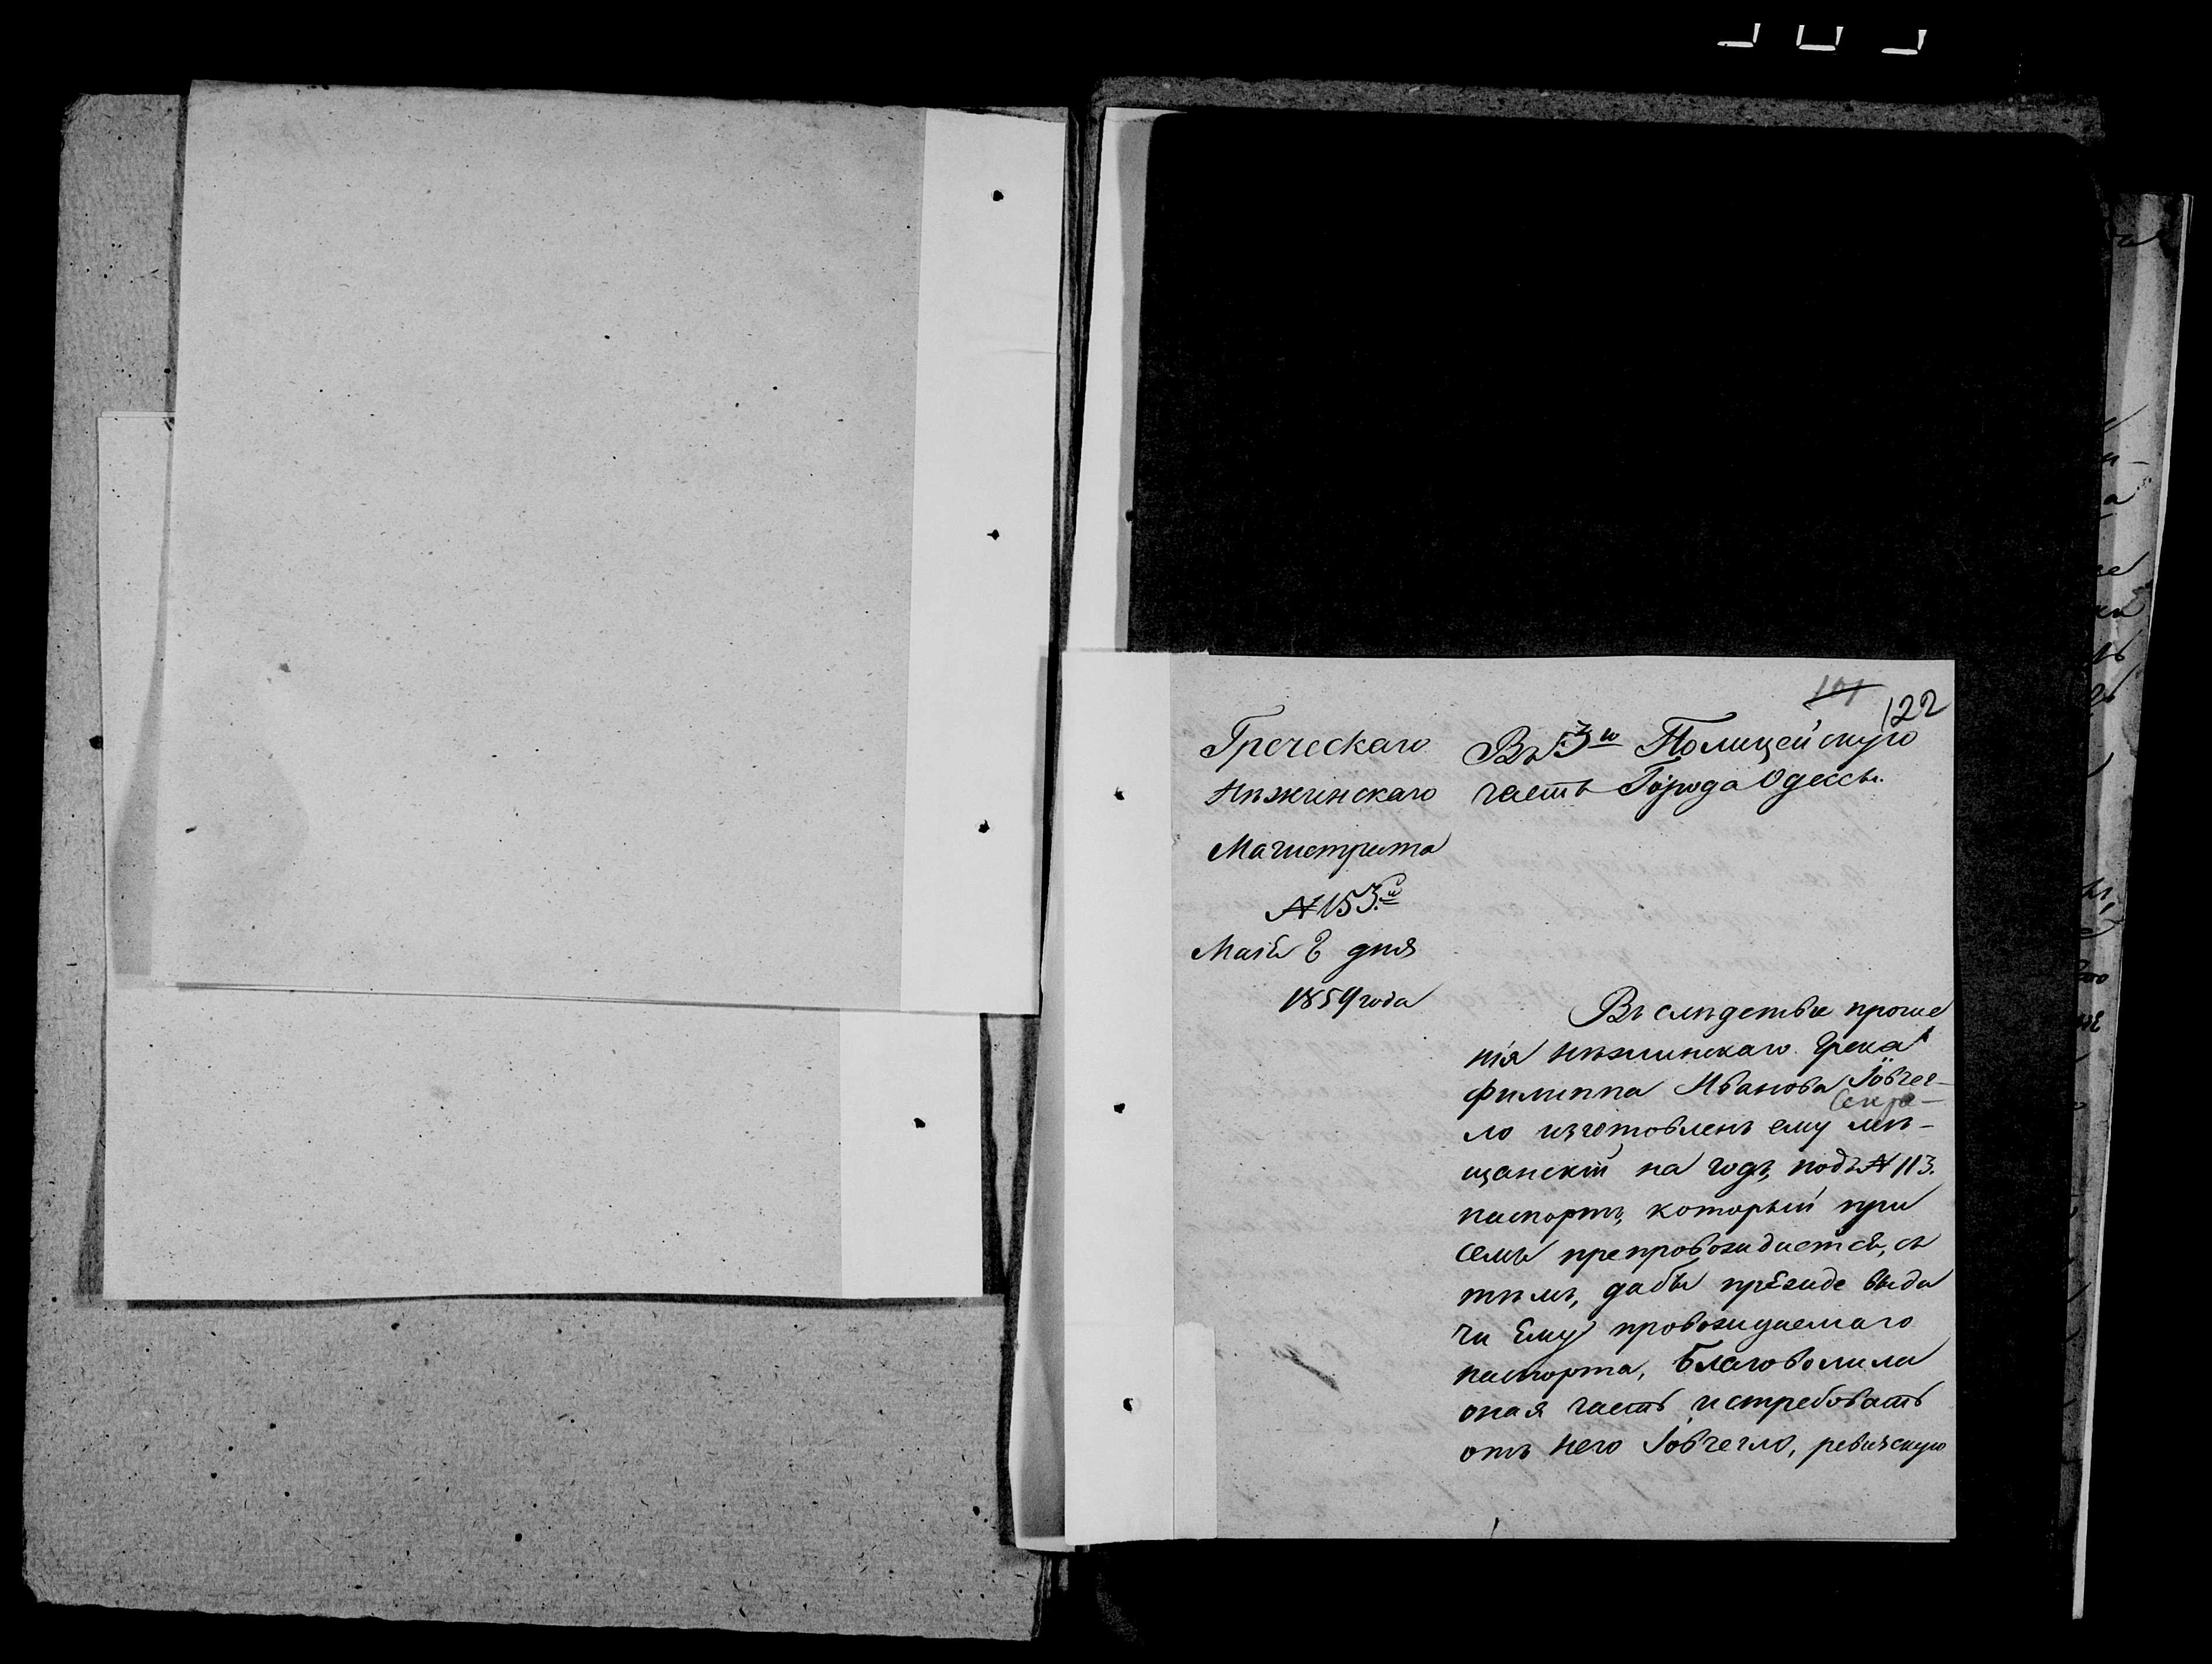 101
122
Греческаго
Нѣжинскаго
Магистрата
№ 153.
Маія 8 дня
1859 года
Въ 3ю Полицейскую
часть Города Одессы.
Въ слѣдствіе проше
нія нѣжинскаго Грека
Филиппа Иванова Іовчег-
ло изготовленъ ему мѣ-
щанскій на годъ, подъ № 113.
паспортъ, который при
семъ препровождается, съ
тѣмъ, дабы прежде выда
чи Ему провождаемаго
паспорта, благоволила
оная часть истребовать
отъ него Іовчегло, ревизскую